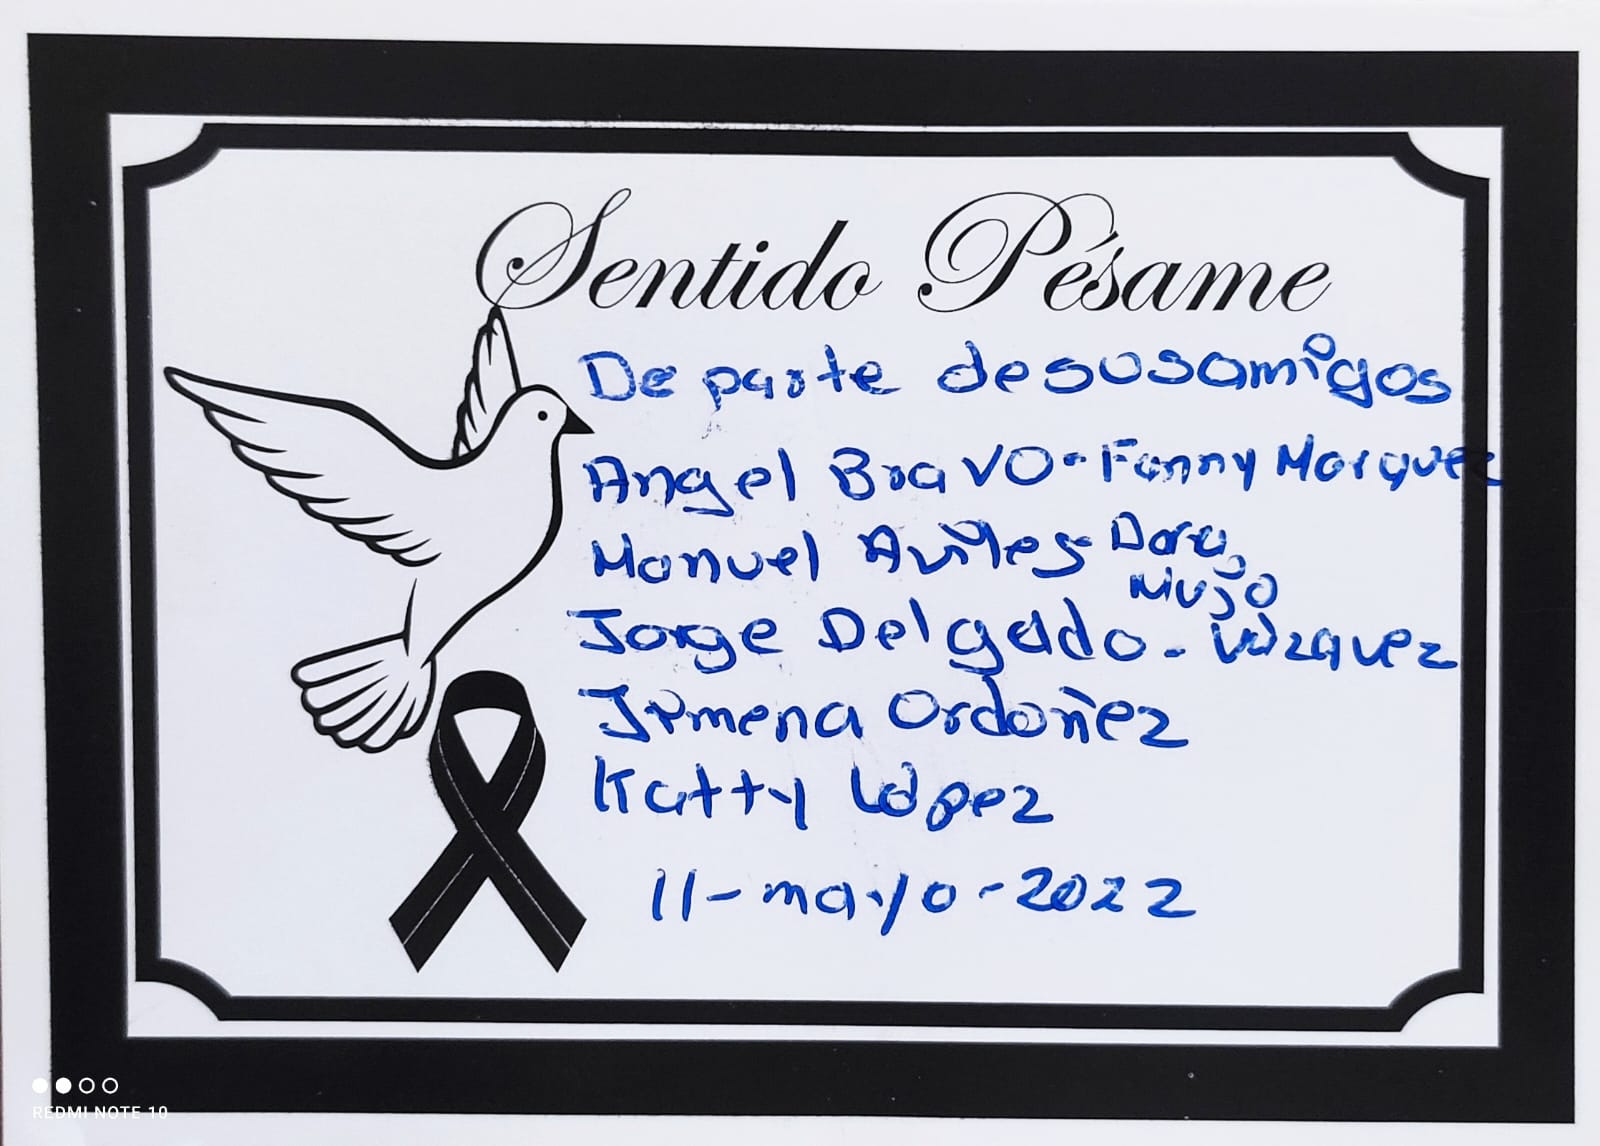 Sentido Pésame
De parte de sus amigos
Angel Bravo - Fanny Marquez
Manuel Aviles - Dora
Mujo
Jorge Delgado - Vázquez
Jimena Ordoñez
Katty López
11-mayo-2022
REDMI NOTE 10